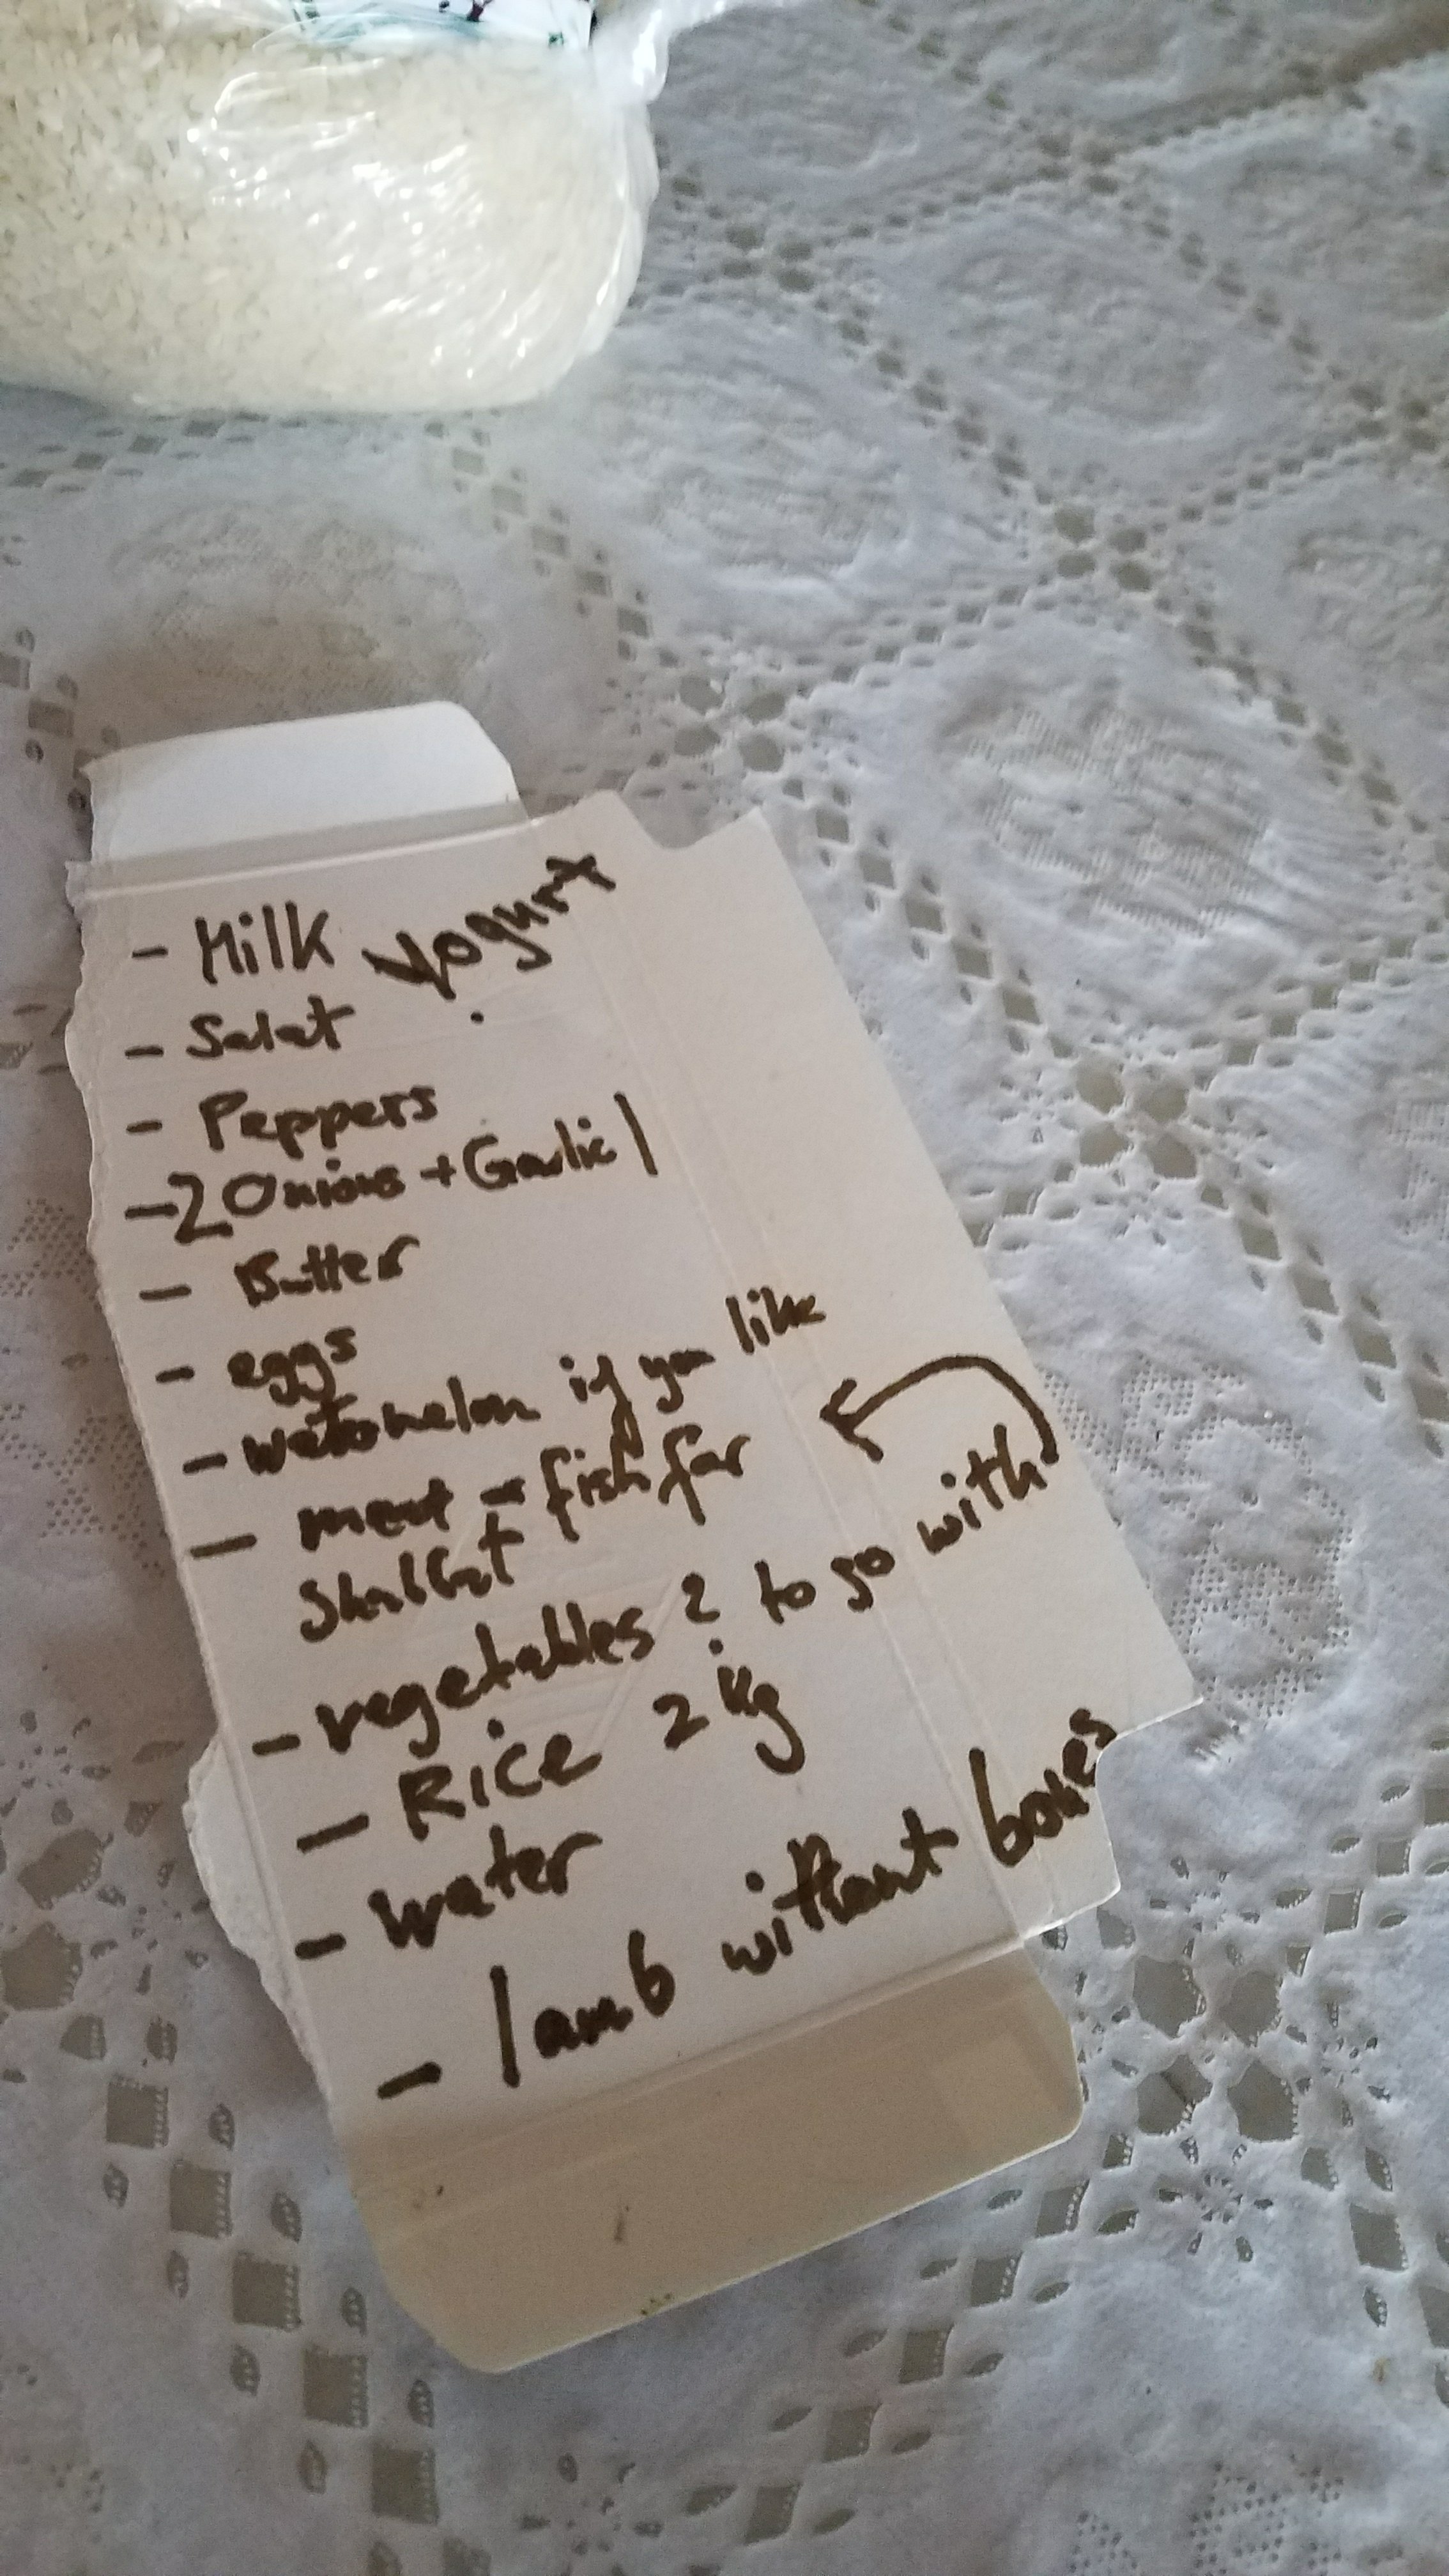 - Milk yogurt
- Salat
- Peppers
- 2 Onions + Garlic 1
- Butter
- eggs
- watomelon if you like
- meat - fish for
Shabbat
- vegetables ? to go with
- Rice 2 kg
- water
- lamb without bones